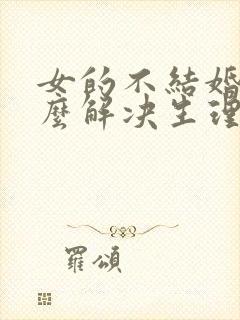 女的不結婚
麼解决生理
羅頌